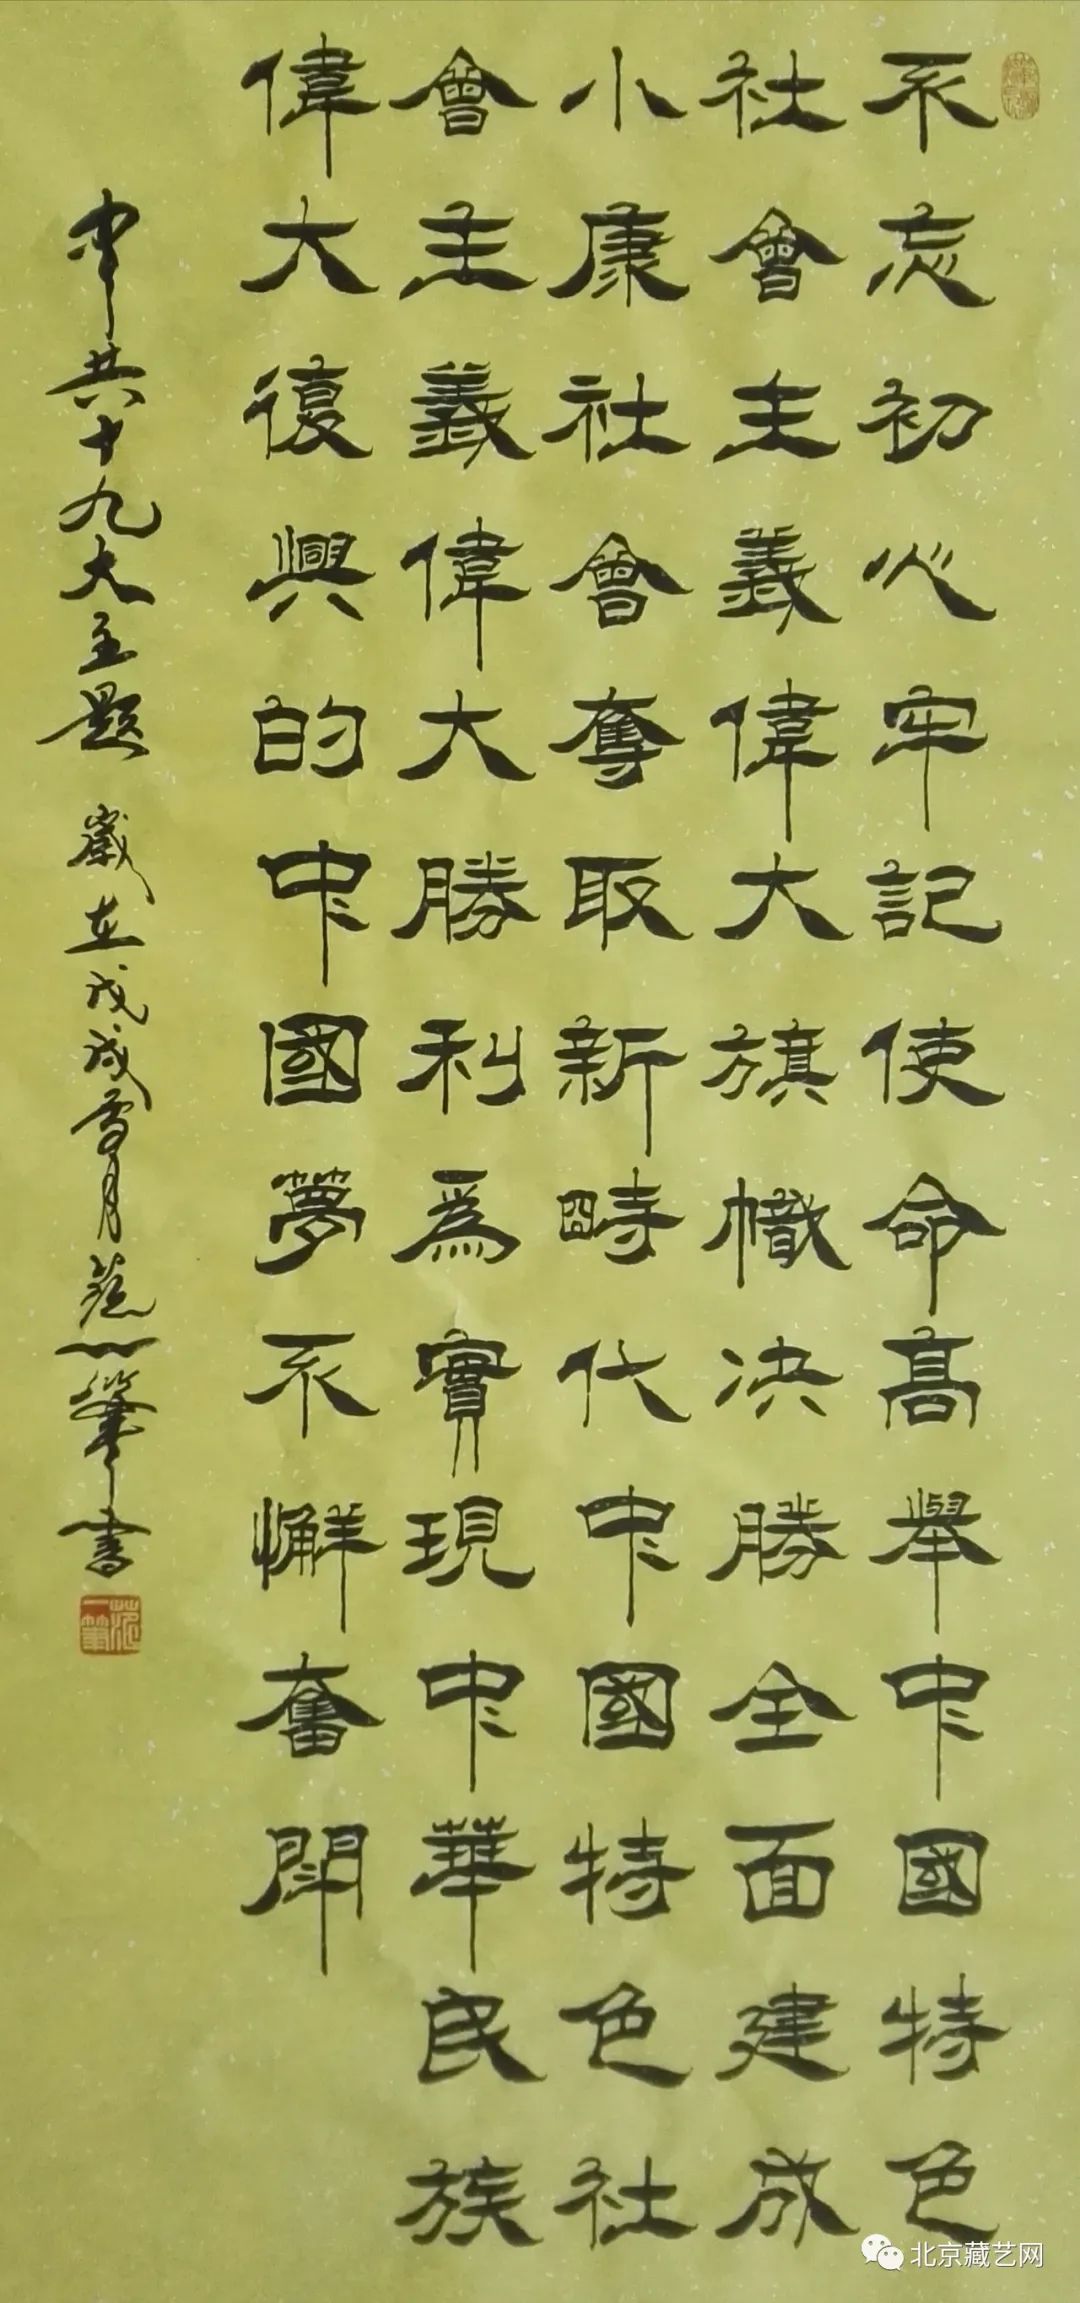 不忘初心牢記使命高舉中國特色
社會主義偉大旗幟决勝全面建成
小康社會奪取新時代中國特色社
會主義偉大勝利爲實現中華民族
偉大復興的中國夢不懈奮閗
中共十九大主題 歲在戊戌雪月范一筆書
范一筆
北京藏艺网